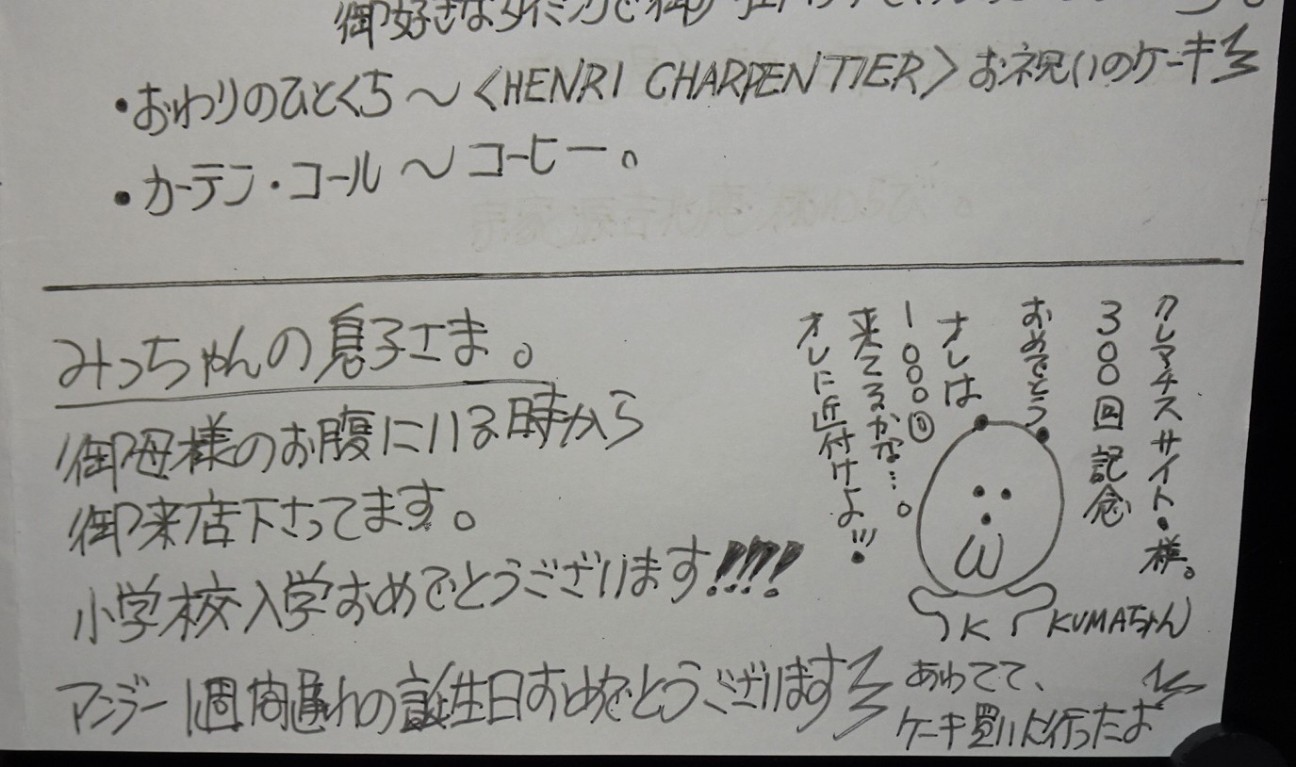 御好きなタイミングで御
・おわりのひとくち〜〈HENRI CHARPENTIER〉お祝いのケーキ
・カーテン・コール〜コーヒー。
みっちゃんの息子さま。
御母様のお腹にいる時から
御来店下さってます。
小学校入学おめでとうございます!!!!
アンジー1週間遅れの誕生日おめでとうございます
クレマチスサイト・様。
300回記念
おめでとう
オレは
1000回
来てるかな…。
オレに近付けよ!!!
K KUMAちゃん
あわてて、
ケーキ買いに行ったよ